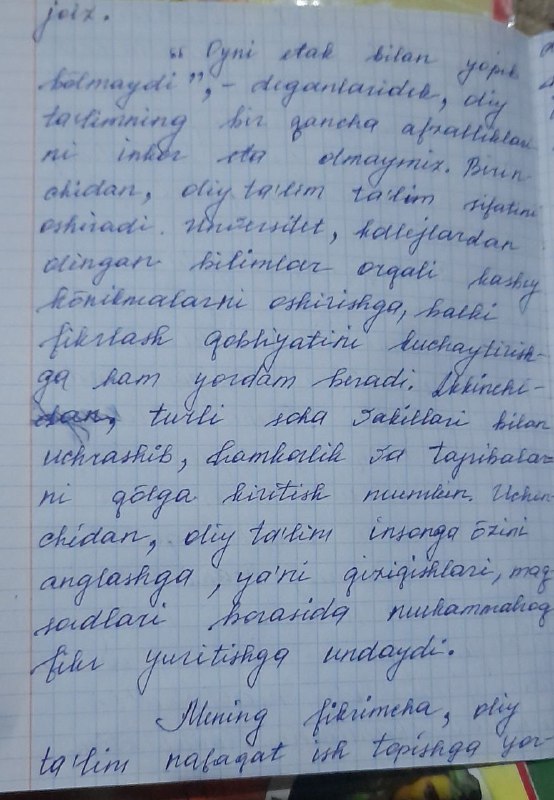 joiz.
" Oyni etak bilan yopib
bölmaydi", - deganlaridek, oliy
ta'limning bir qancha afzalliklari
ni inkor eta olmaymiz. Birin
chidan, oliy ta'lim ta'lim sifatini
oshiradi. Universitet, kollejlardan
olingan bilimlar orqali kasbiy
könikmalarni oshirishga, balki
fikrlash qobliyatini kuchaytirish-
ga ham yordam beradi. Ikkinchi-
dan, turli soha vakillari bilan
uchrashib, hamkorlik va tajribalar-
ni qölga kiritish mumkin. Uchin-
chidan, oliy ta'lim insonga özini
anglashga, ya'ni qiziqishlari, maq-
sadlari borasida mukammalroq
fikr yuritishga undaydi.
Mening fikrimcha, oliy
ta'lim nafaqat ish topishga yor-